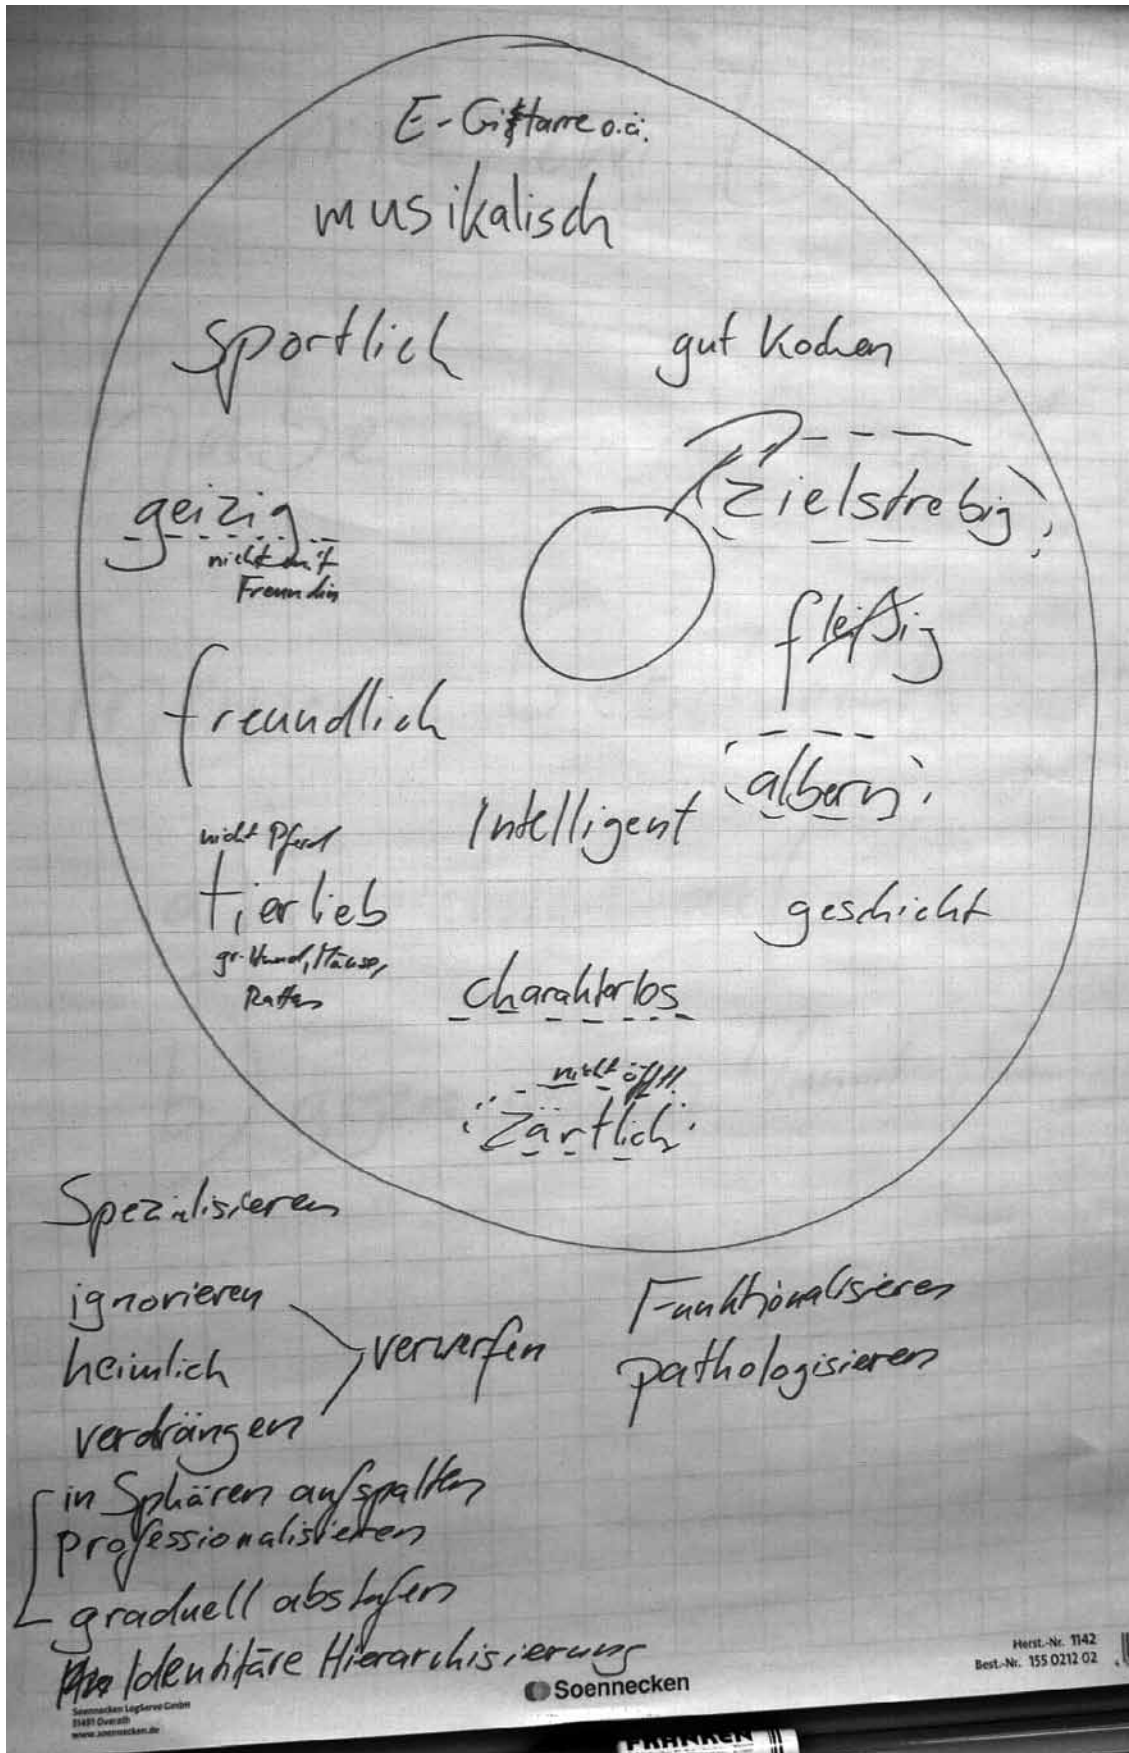 E-Gitarre o.ä.
musikalisch
sportlich
gut Kochen
zielstrebig
geizig
nicht mit
Freundin
fleißig
freundlich
albern
Intelligent
nicht Pferd
tierlieb
gr. Hund, Mäuse,
Ratten
geschickt
charakterlos
nicht öff!!
Zärtlich
Spezialisieren
ignorieren
heimlich
verdrängen
verwerfen
Funktionalisieren
pathologisieren
in Sphären aufspalten
professionalisieren
graduell abstufen
Identitäre Hierarchisierung
Soennecken
Herst.-Nr. 1142
Best.-Nr. 155 0212 02
Soennecken LogServe GmbH
51491 Overath
www.soennecken.de
FRANKEN